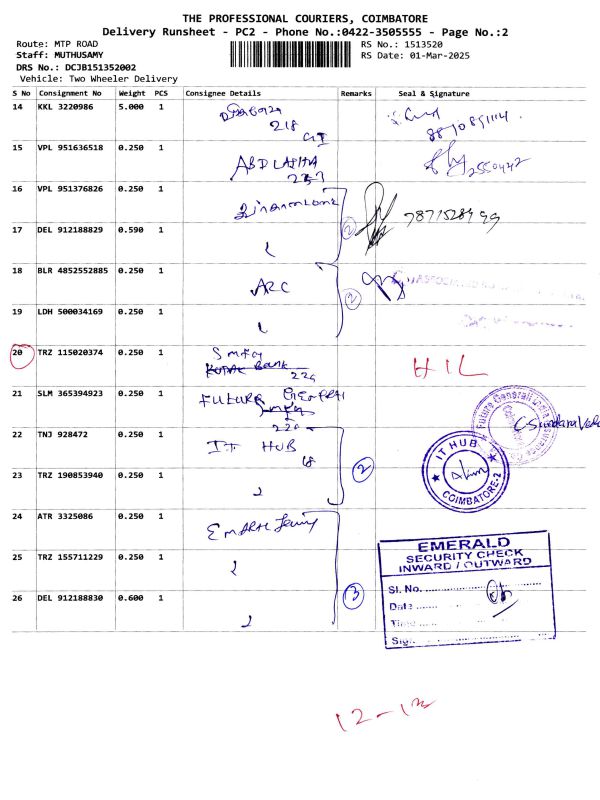 THE PROFESSIONAL COURIERS, COIMBATORE
Delivery Runsheet - PC2 - Phone No.:0422-3505555 - Page No.:2
Route: MTP ROAD
RS No.: 1513520
Staff: MUTHUSAMY
RS Date: 01-Mar-2025
DRS No.: DCJB151352002
Vehicle: Two Wheeler Delivery
S No Consignment No Weight PCS Consignee Details Remarks Seal & Signature
14 KKL 3220986 5.000 1
218
15 VPL 951636518 0.250 1
16 VPL 951376826 0.250 1
17 DEL 912188829 0.590 1 2
18 BLR 4852552885 0.250 1 ARC 2
19 LDH 500034169 0.250 1
20 TRZ 115020374 0.250 1 HIL
224
21 SLM 365394923 0.250 1 FUTURE GENERALI
220
22 TNJ 928472 0.250 1 IT HUB
68
IT HUB
COIMBATORE-2
23 TRZ 190853940 0.250 1 2
24 ATR 3325086 0.250 1
25 TRZ 155711229 0.250 1
26 DEL 912188830 0.600 1 3
EMERALD
SECURITY CHECK
INWARD / OUTWARD
Sl. No.
Date
Time
Sign.
12-13